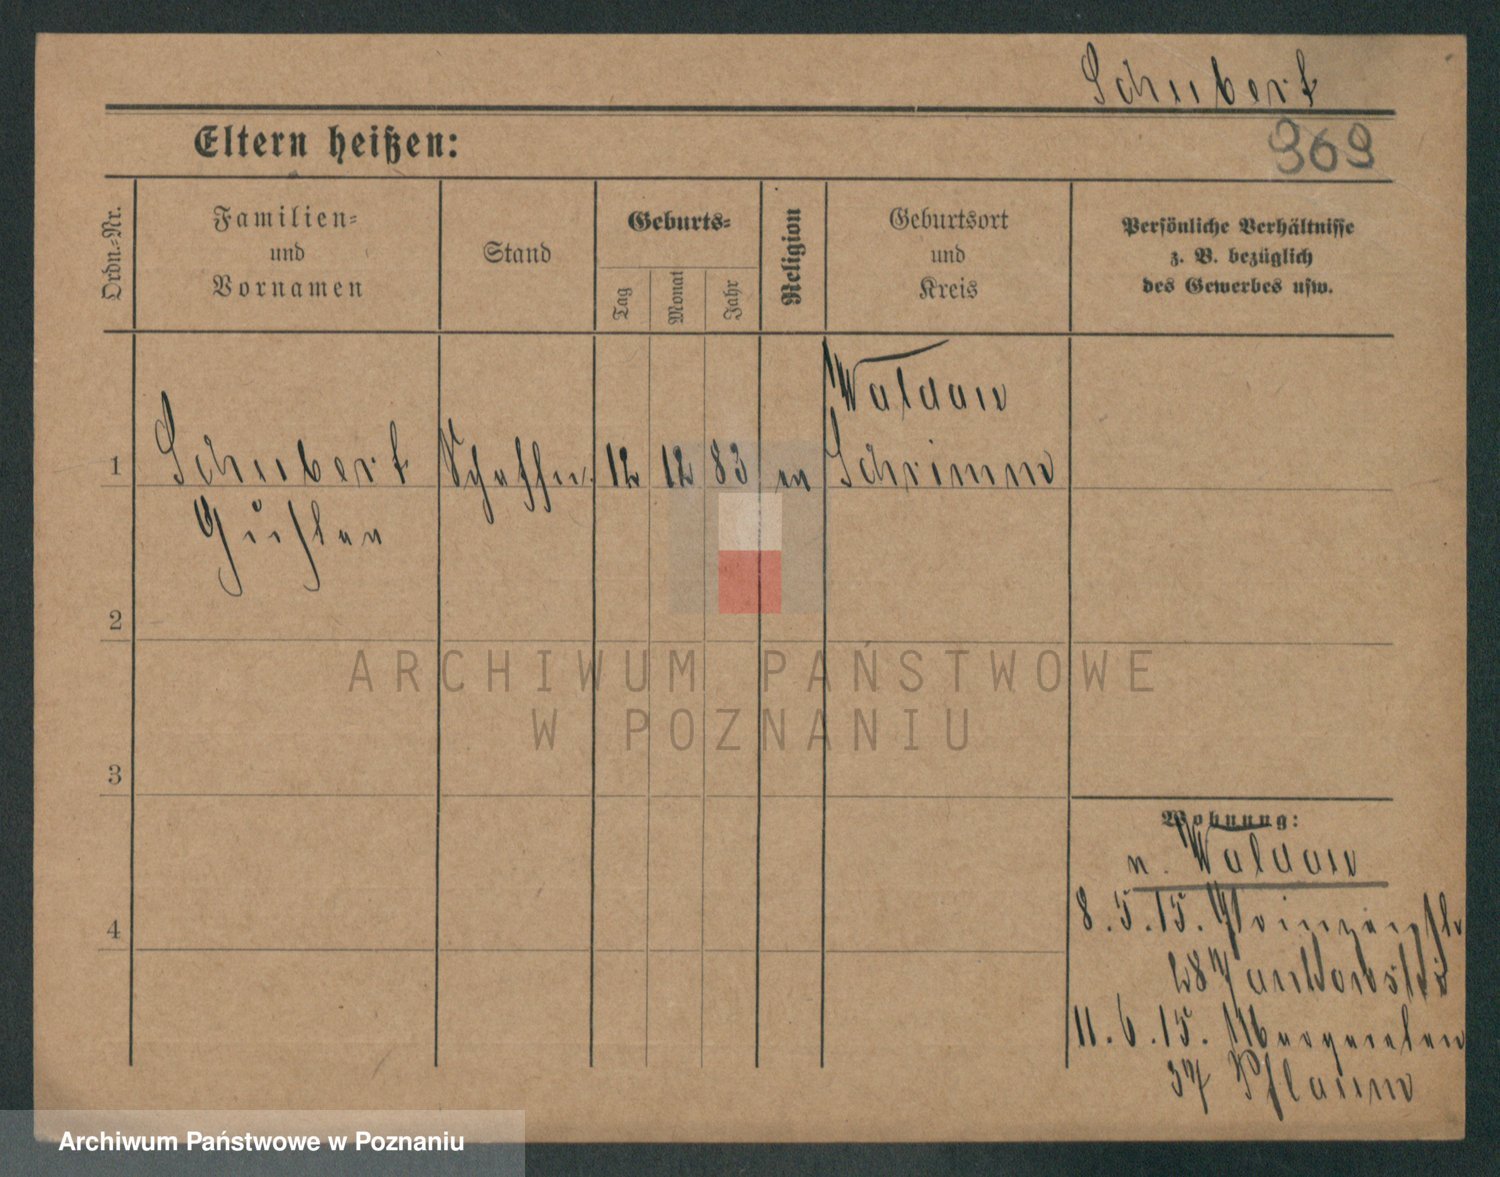 Schubert
369
Eltern heißen:
Ordn.=Nr.
Familien=
und
Vornamen
Stand
Geburts=
Tag
Monat
Jahr
Religion
Geburtsort
und
Kreis
Persönliche Verhältnisse
z. B. bezüglich
des Gewerbes usw.
Waldau
1 Schubert 12 12 83 Schrimm
2
3
4
Wohnung:
n. Waldau
8.5.15.
28
11.6.15.
37 Pflaum
ARCHIWUM PAŃSTWOWE
W POZNANIU
Archiwum Państwowe w Poznaniu